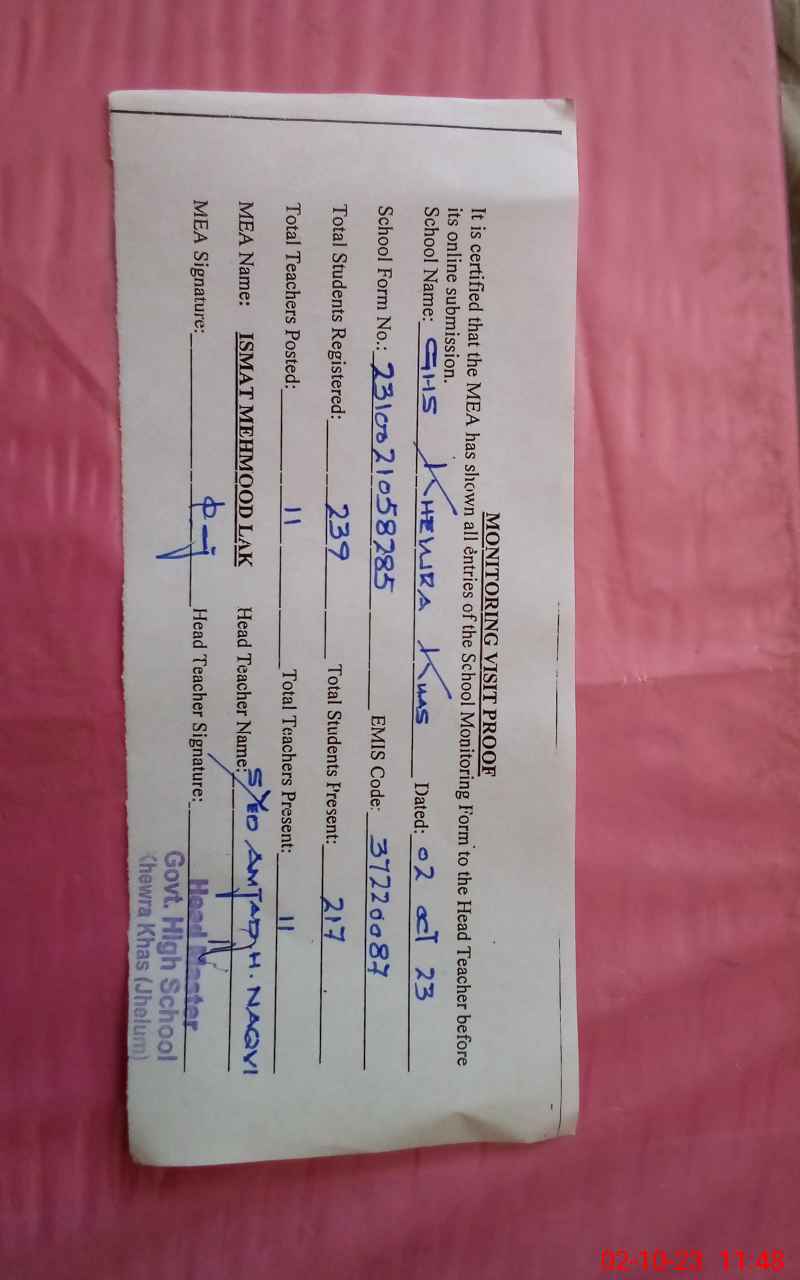 MONITORING VISIT PROOF
It is certified that the MEA has shown all entries of the School Monitoring Form to the Head Teacher before
its online submission.
School Name: GHS KHEWRA KHAS Dated: 02 OCT 23
School Form No.: 2310021058285 EMIS Code: 37220087
Total Students Registered: 239 Total Students Present: 217
Total Teachers Posted: 11 Total Teachers Present: 11
MEA Name: ISMAT MEHMOOD LAK Head Teacher Name: SYED AMJAD H. NAQVI
MEA Signature: Head Teacher Signature:
Head Master
Govt. High School
Khewra Khas (Jhelum)
02-10-23 11:48